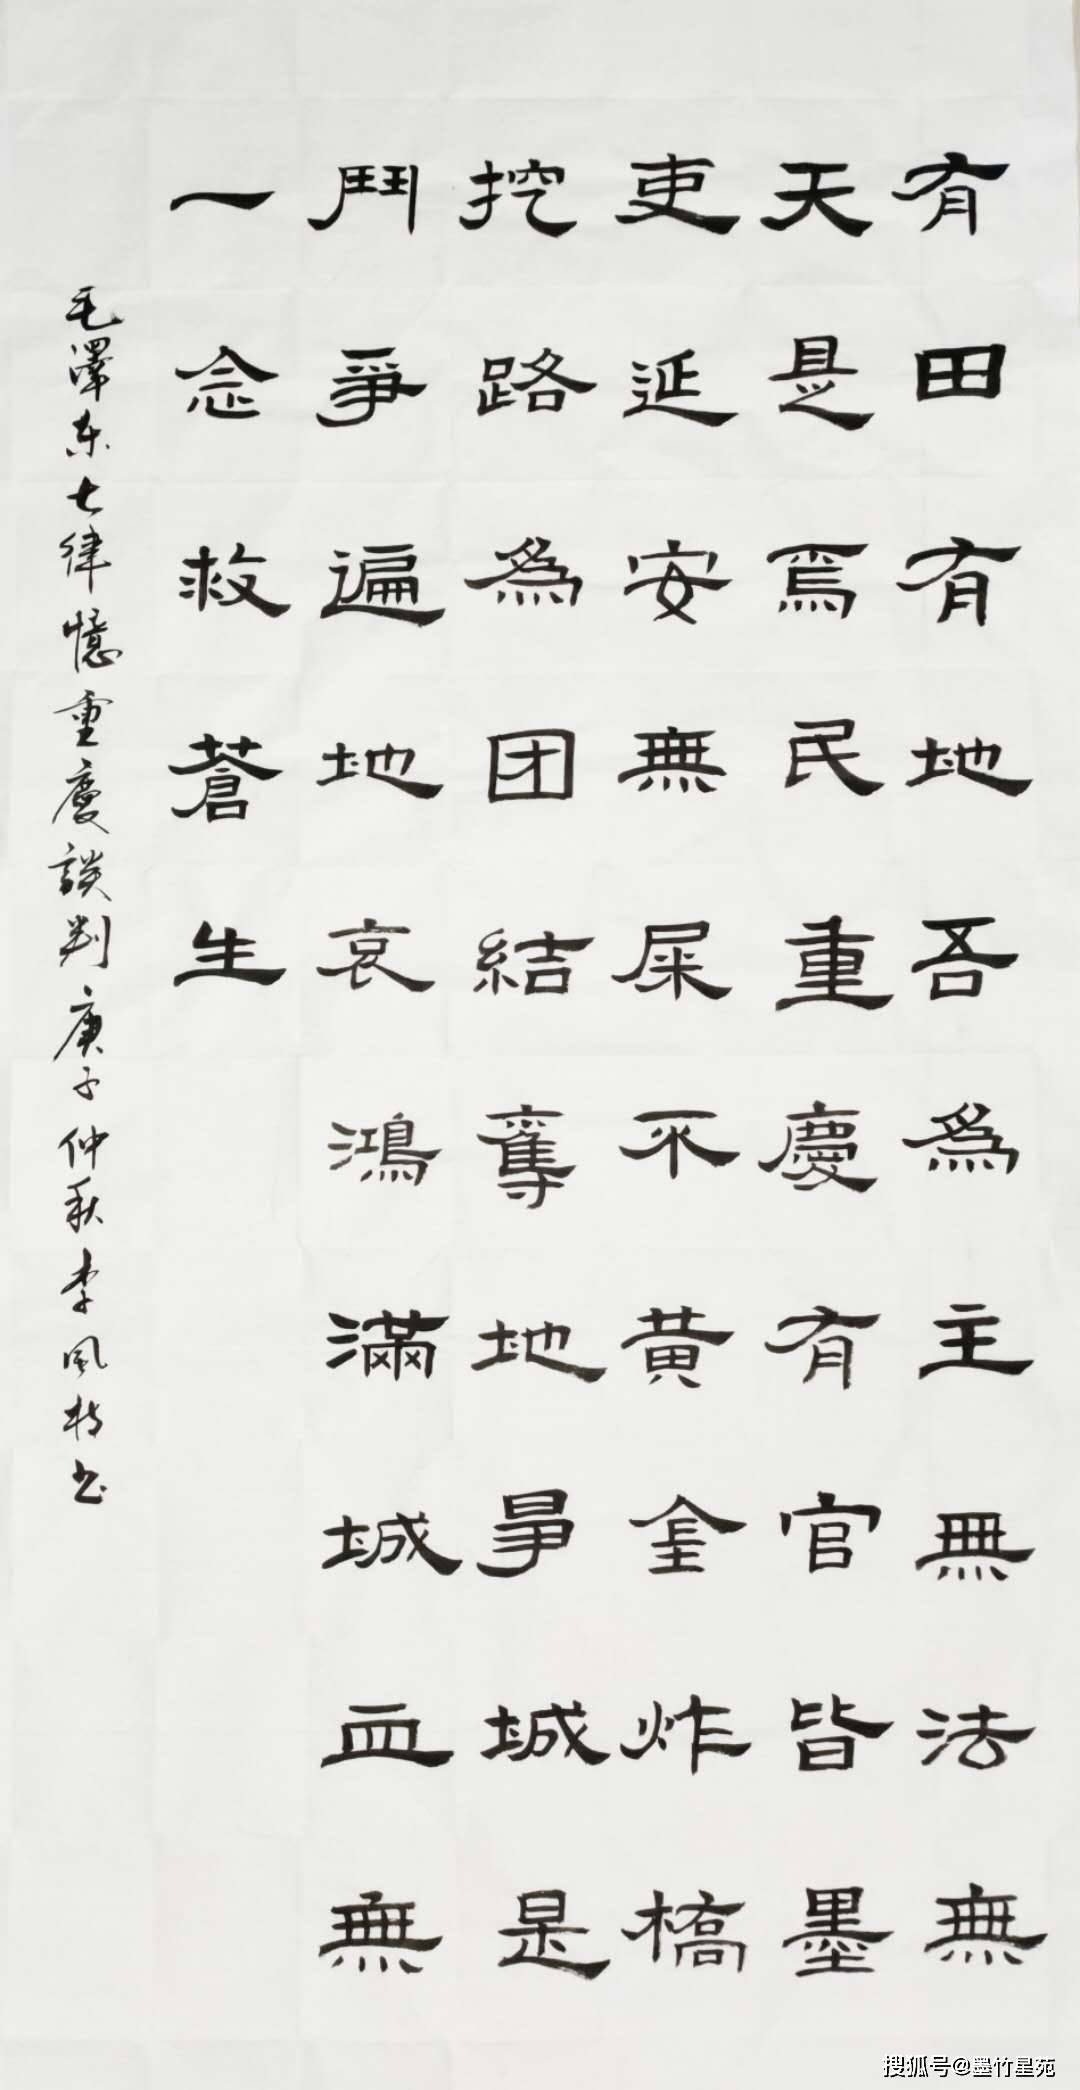 有田有地吾為主無法無
天是焉民重慶有官皆墨
吏延安無屎不黄金炸橋
挖路為团結奪地爭城是
鬥爭遍地哀鴻滿城血無
一念救蒼生
毛澤东七律憶重慶談判庚子仲秋李風书
搜狐号@墨竹星苑